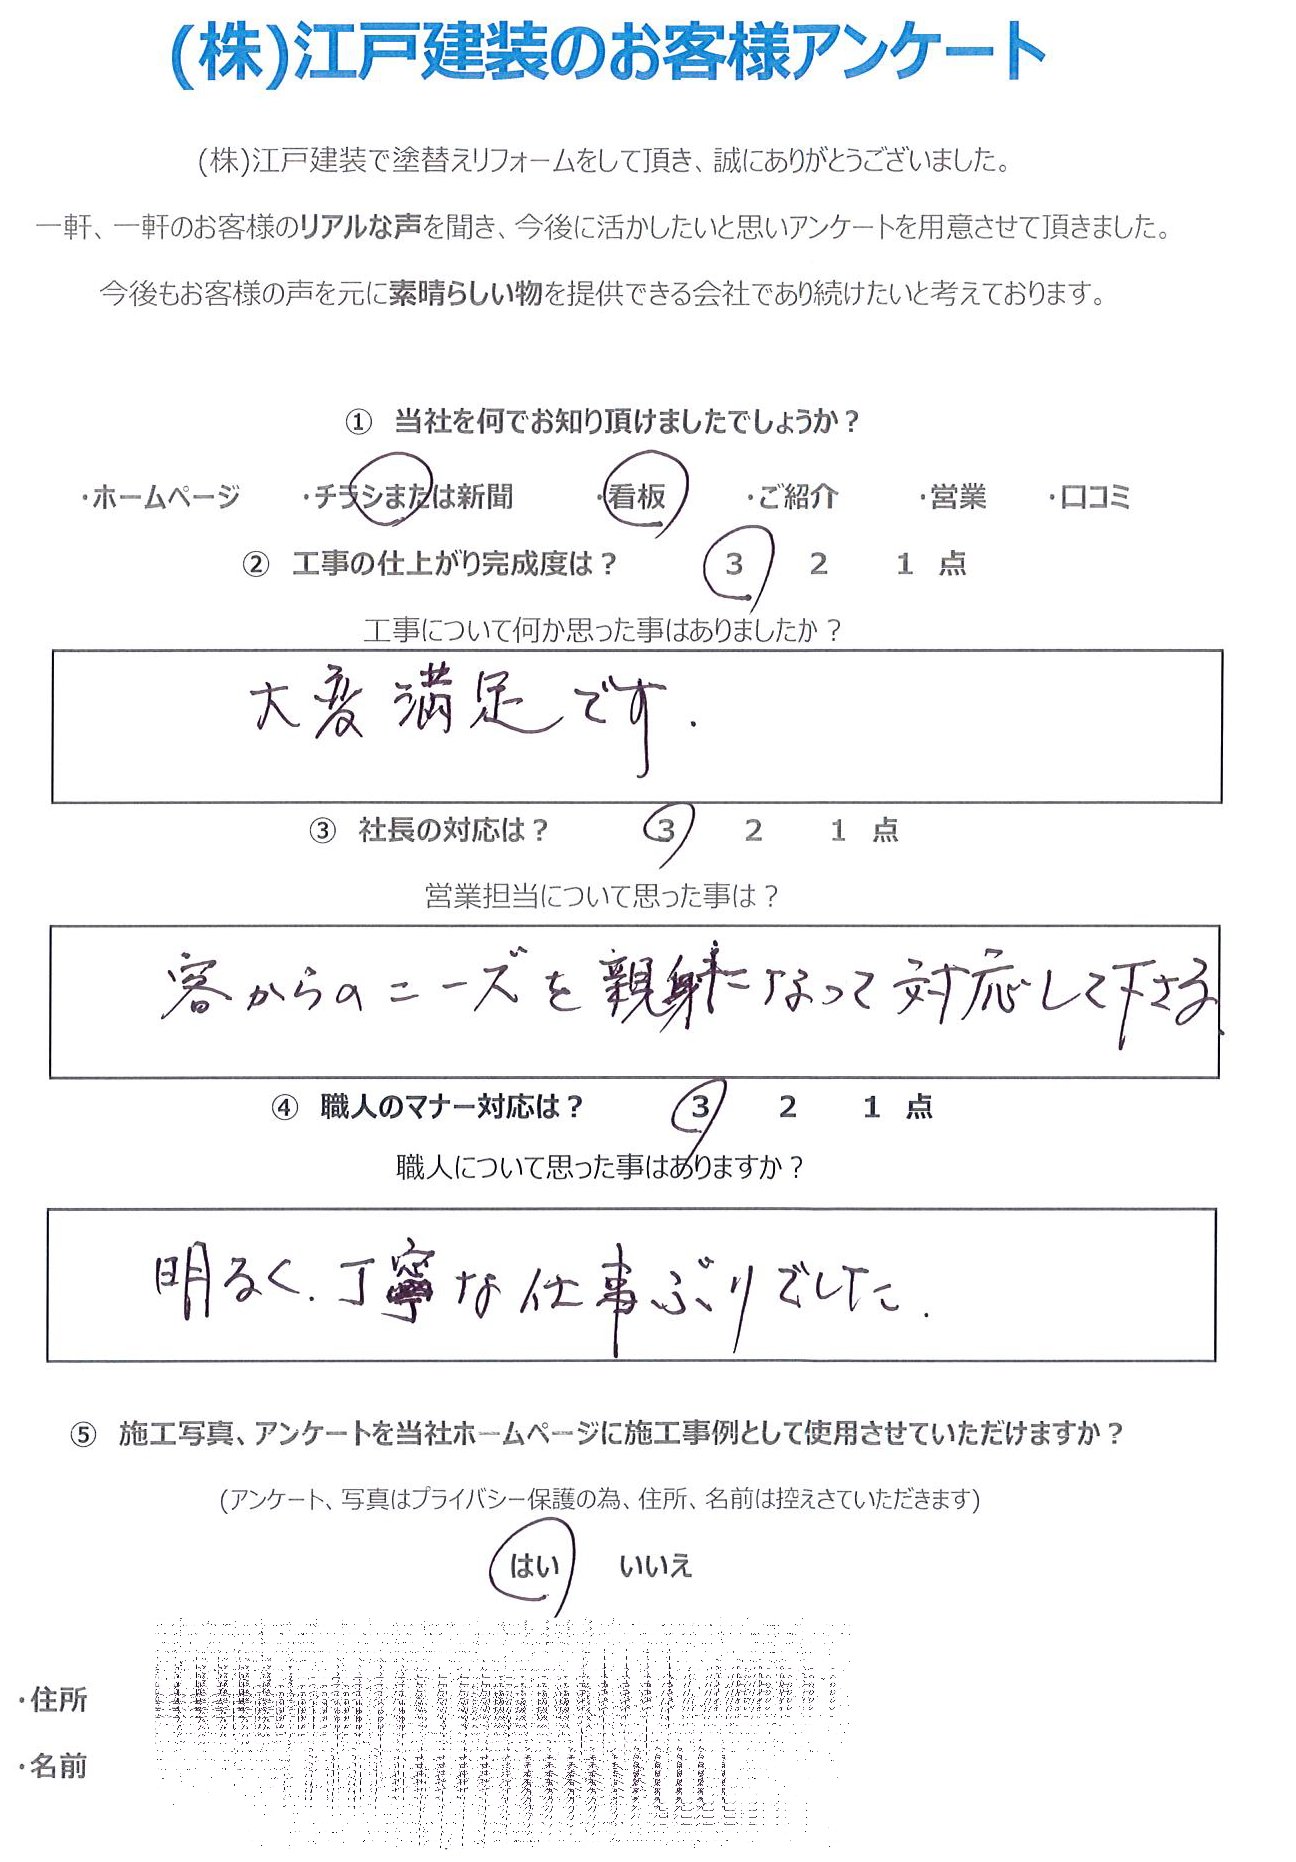 (株)江戸建装のお客様アンケート
(株)江戸建装で塗替えリフォームをして頂き、誠にありがとうございました。
一軒、一軒のお客様のリアルな声を聞き、今後に活かしたいと思いアンケートを用意させて頂きました。
今後もお客様の声を元に素晴らしい物を提供できる会社であり続けたいと考えております。
① 当社を何でお知り頂けましたでしょうか？
・ホームページ ・チラシまたは新聞 ・看板 ・ご紹介 ・営業 ・口コミ
② 工事の仕上がり完成度は？ 3 2 1 点
工事について何か思った事はありましたか？
大変満足です.
③ 社長の対応は？ 3 2 1 点
営業担当について思った事は？
客からのニーズを親身になって対応して下さる、
④ 職人のマナー対応は？ 3 2 1 点
職人について思った事はありますか？
明るく、丁寧な仕事ぶりでした.
⑤ 施工写真、アンケートを当社ホームページに施工事例として使用させていただけますか？
(アンケート、写真はプライバシー保護の為、住所、名前は控えさていただきます)
はい いいえ
・住所
・名前